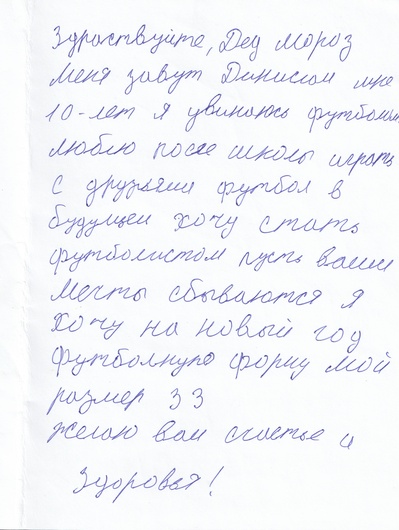 Здраствуйте, Дед Мороз
Меня зовут Данислам мне
10-лет я увликаюсь футболом
люблю после школы играть
с друзьями футбол в
будущем хочу стать
футболистом пусть ваши
мечты сбываются я
хочу на новый год
футболную форму мой
размер 33
желаю вам счастье и
Здоровья!